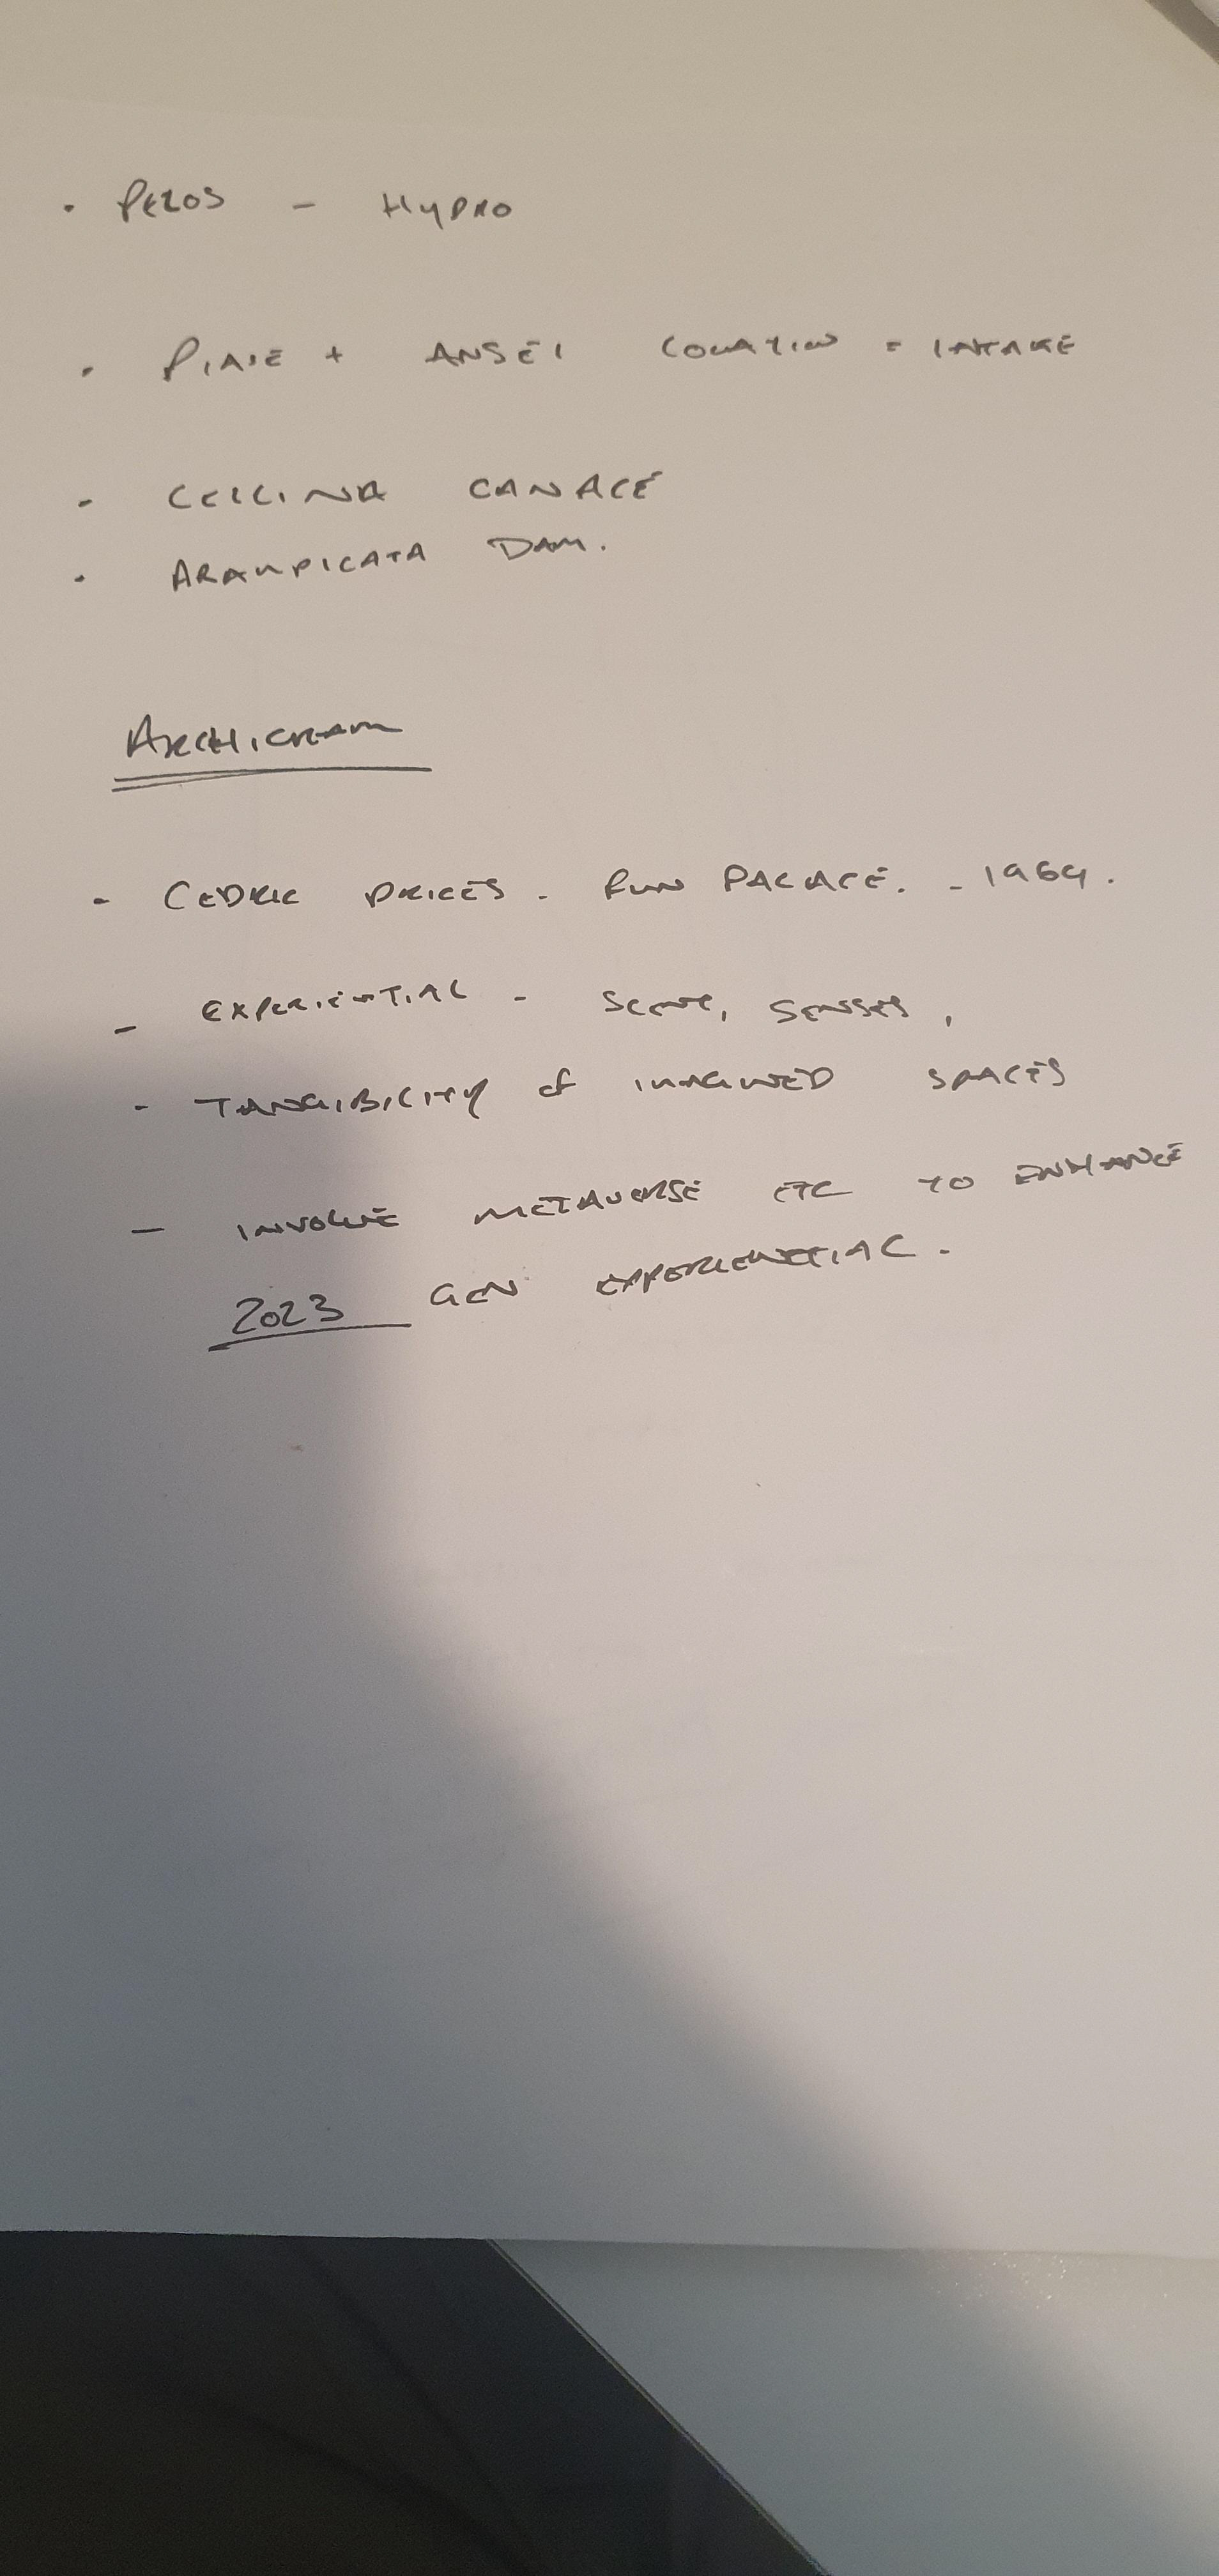 · PEZOS - HYDRO
· PIAVE + ANSEI LOCATION = INTAKE
· CELLINA CANALE
· DAM.
ARCHIGRAM
- CEDRIC PRICES - FUN PALACE. - 1964.
- EXPERIENTIAL - SCENT, SENSES,
- TANGIBILITY of IMAGINED SPACES
- INVOLVE METAVERSE ETC TO ENHANCE
2023 GEN EXPERIENETIAL.